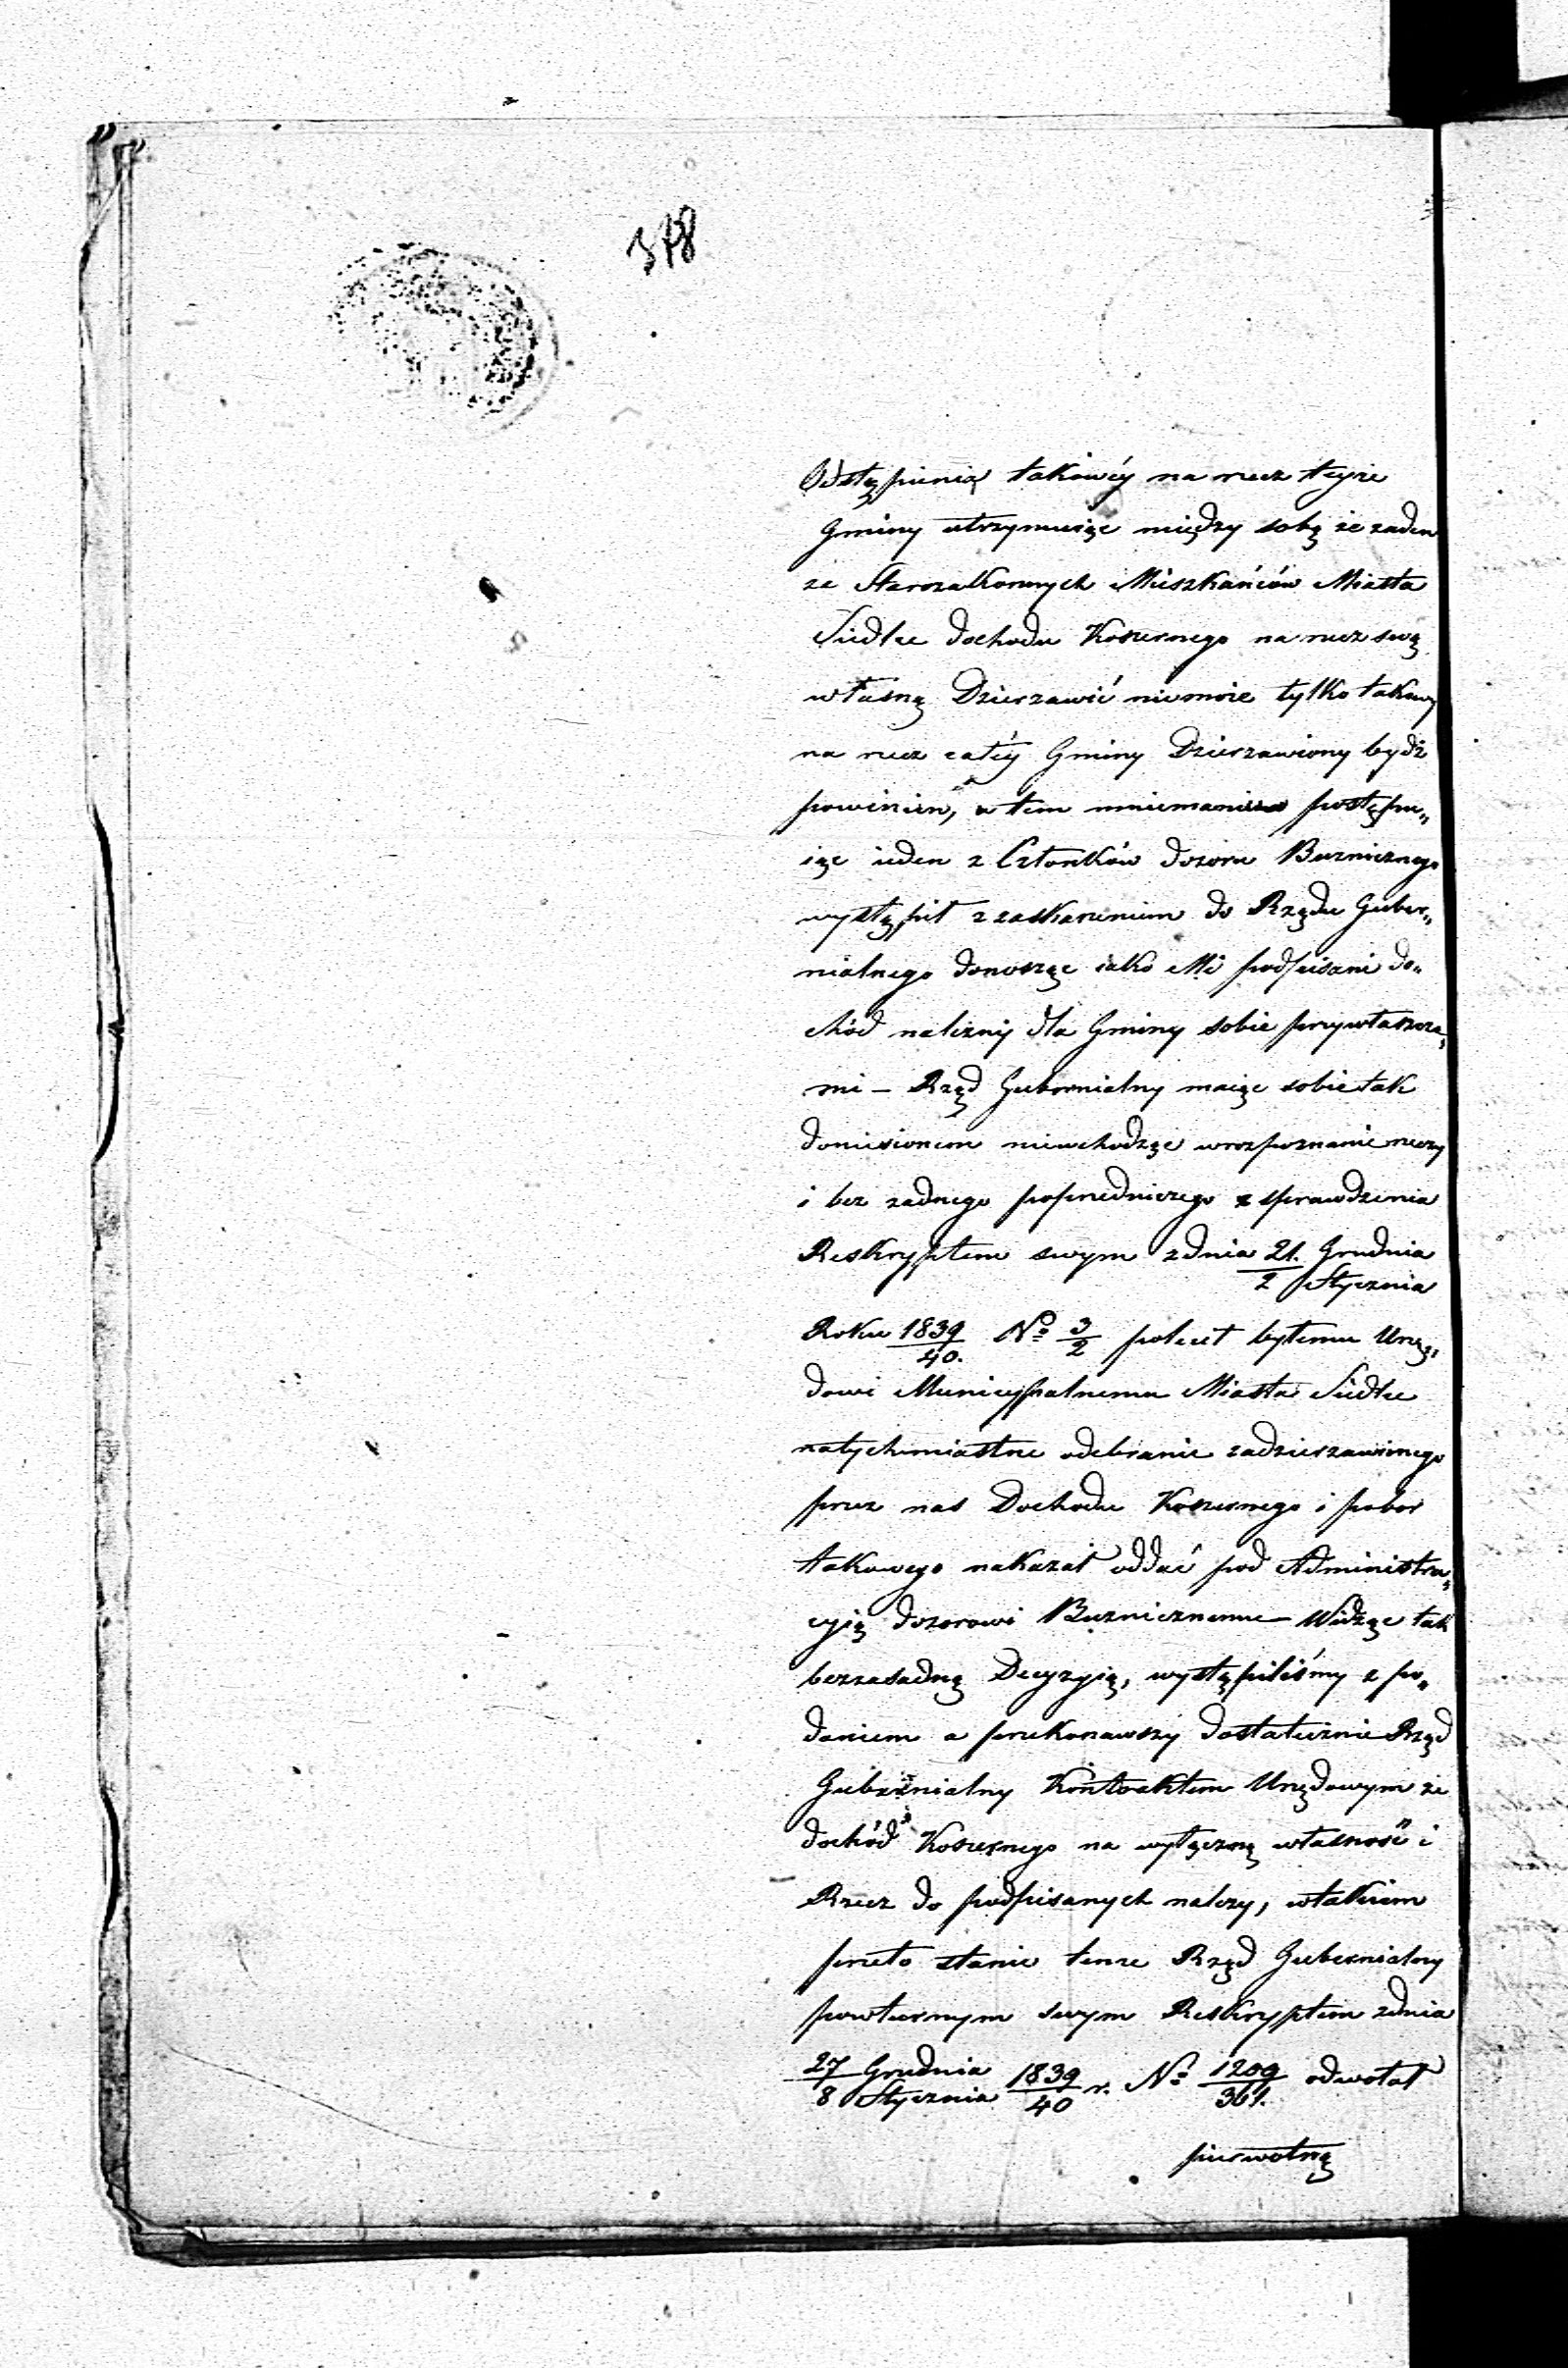 378
Odstąpienia takowéy na rzecz teyże
Gminy utrzymuiąc między sobą że żaden
ze Starozakonnych Mieszkańców Miasta
Siedlce dochodu Koszernego na rzecz swą
własną Dzierzawić niemoże tylko takowy
na rzecz całéy Gminy Dzierzawiony bydź
powinien, w tem mniemaniu postępu„
iąc ieden z Członków dozoru Bużnicznego
wystąpił z zaskarzeniem do Rządu Guber„
nialnego donosząc iako Mi podpisani do„
chód należny dla Gminy sobie przywłaszcza„
mi – Rząd Gubernialny maiąc sobie tak
doniesionem niewchodząc w rozpoznanie rzeczy
i bez żadnego poprzedniczego sprawdzenia
Reskryptem swym z dnia 21. Grudnia
2 Stycznia
Roku 1839/40. No 3/2 polecił byłemu Urzę„
dowi Municypalnemu Miasta Siedlce
natychmiastne odebranie zadzierzawionego
przez nas Dochodu Koszernego i pobór
takowego nakazał oddać pod Administra„
cyią dozorowi Bużnicznemu – Widząc tak
bezzasadną Decyzyią, wystąpiliśmy z po„
daniem a przekonawszy dostatecznie Rząd
Gubernialny Kontraktem Urzędowym że
dochód Koszernego na wyłączną własność i
Rzecz do podpisanych należy, w takiem
przeto stanie tenże Rząd Gubernialny
powtórnym swym Reskryptem z dnia
27 Grudnia/8 Stycznia 1839/40 r. No 1209/361. odwołał
pierwotną